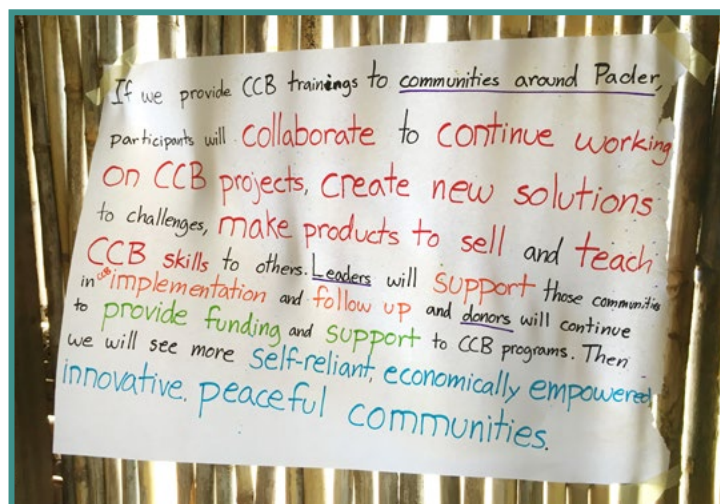 If we provide CCB trainings to communities around Pader,
participants will collaborate to continue working
on CCB projects, create new solutions
to challenges, make products to sell and teach
CCB skills to others. Leaders will support those communities
in CCB implementation and follow up and donors will continue
to provide funding and support to CCB programs. Then
we will see more self-reliant, economically empowered,
innovative, peaceful communities.